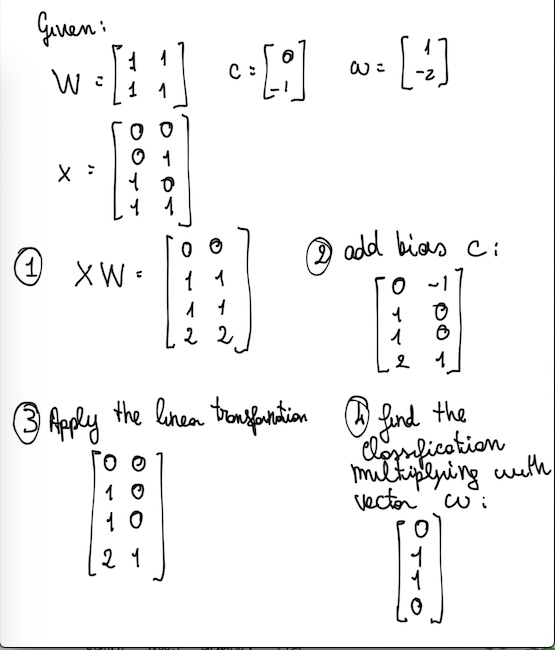 Given:
W = [1 1
1 1]
c = [0
-1]
w = [1
-2]
X = [0 0
0 1
1 0
1 1]
① XW = [0 0
1 1
1 1
2 2]
② add bias c:
[0 -1
1 0
1 0
2 1]
③ Apply the linear transformation
[0 0
1 0
1 0
2 1]
④ find the
classification
multiplying with
vector w:
[0
1
1
0]